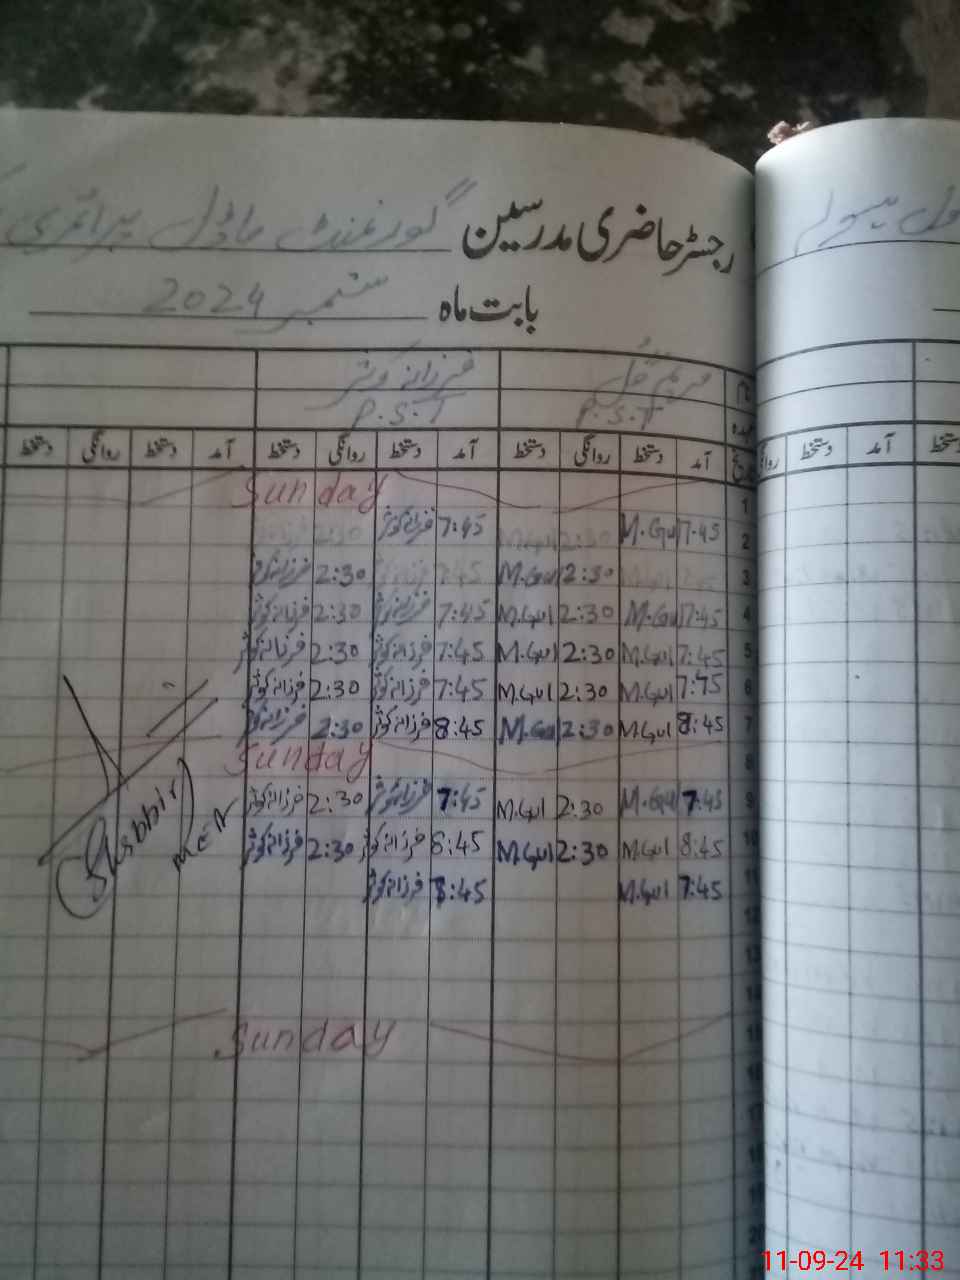 رجسٹر حاضری مدرسین گورنمنٹ ماڈل پرائمری
بابت ماہ ستمبر 2024
فرزانہ کوثر
P.S.T P.S.T
تاریخ آمد دستخط روانگی دستخط آمد دستخط روانگی دستخط آمد دستخط روانگی دستخط
آمد دستخط
1 Sunday
2 7:45 M.Gul 2:30 M.Gul 7:45 فرزانہ کوثر 2:30
3 M.Gul 2:30 M.Gul 7:45 2:30 فرزانہ کوثر
4 7:45 M.Gul 2:30 M.Gul 7:45 فرزانہ کوثر 2:30 فرزانہ کوثر
5 7:45 M.Gul 2:30 M.Gul 7:45 فرزانہ کوثر 2:30 فرزانہ کوثر
6 7:45 M.Gul 2:30 M.Gul 7:45 فرزانہ کوثر 2:30 فرزانہ کوثر
7 8:45 M.Gul 2:30 M.Gul 8:45 فرزانہ کوثر 2:30 فرزانہ کوثر
8 Sunday
9 7:45 M.Gul 2:30 M.Gul 7:45 فرزانہ کوثر 2:30 فرزانہ کوثر
10 8:45 M.Gul 2:30 M.Gul 8:45 فرزانہ کوثر 2:30 فرزانہ کوثر
11 7:45 M.Gul فرزانہ کوثر
Shabbir
MEA
12
13
14
15 Sunday
16
17
18
19
20
11-09-24 11:33